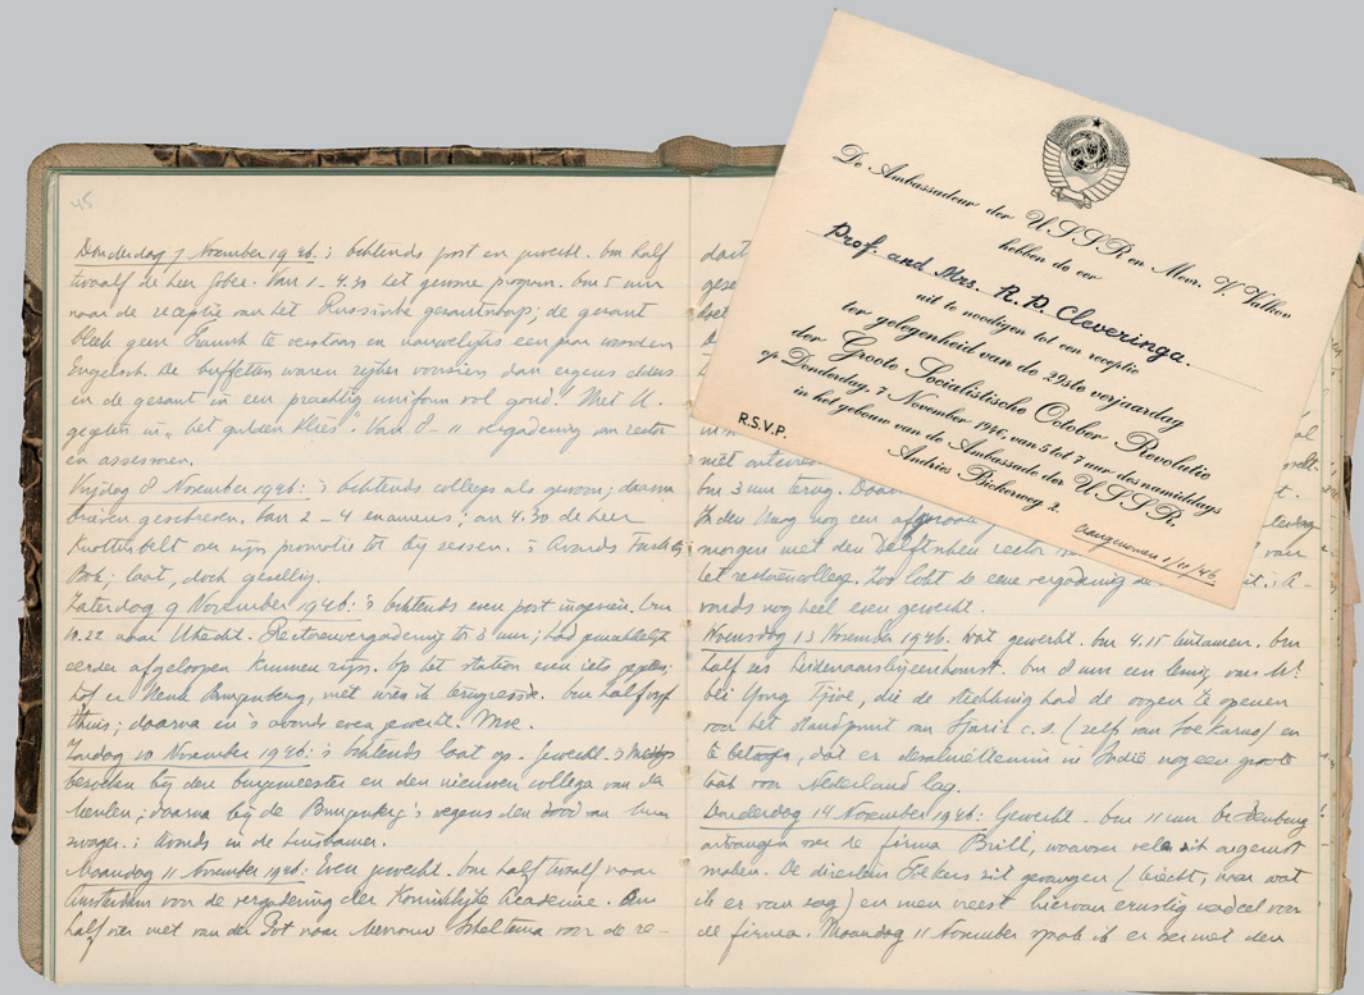 45
Donderdag 7 November 1946: 's ochtends post en gewerkt. Om half
twaalf de heer Gobée. Van 1 - 4.30 het gewone program. Om 5 uur
naar de receptie van het Russische gezantschap; de gezant
bleek geen Fransch te verstaan en nauwelijks een paar woorden
Engelsch. De buffetten waren rijker voorzien dan ergens elders
en de gezant in een prachtig uniform vol goud! Met H.
gegeten in "het gulden Vlies". Van 8 - 11 vergadering van rector
en assessoren.
Vrijdag 8 November 1946: 's ochtends college als gewoon; daarna
brieven geschreven. Van 2 - 4 examens; om 4.30 de heer
Knottenbelt over zijn promotie tot bij zessen. 's Avonds
Bok; laat, doch gezellig.
Zaterdag 9 November 1946: 's ochtends even post ingezien. Om
10.22 naar Utrecht. Rectorenvergadering tot 3 uur; had gemakkelijk
eerder afgeloopen kunnen zijn. Op het station even iets gegeten;
trof er Henk met wien ik terugreisde. Om half vijf
thuis; daarna en 's avonds even gewerkt. Moe.
Zondag 10 November 1946: 's ochtends laat op. Gewerkt. 's Middags
bezoeken bij den burgemeester en den nieuwen collega van der
Meulen; daarna bij de wegens den dood van hun
zwager. 's Avonds in de huiskamer.
Maandag 11 November 1946: Even gewerkt. Om half twaalf naar
Amsterdam voor de vergadering der Koninklijke Academie. Om
half vier met van der Pot naar Mevrouw Scheltema voor de re-
De Ambassadeur der U.S.S.R. en Mevr. V. Valkov
hebben de eer
Prof. and Mrs. R. P. Cleveringa.
uit te noodigen tot een receptie
ter gelegenheid van de 29ste verjaardag
der Groote Socialistische October Revolutie
op Donderdag, 7 November 1946, van 5 tot 7 uur des namiddags
in het gebouw van de Ambassade der U.S.S.R.
Andries Bickerweg 2.
R.S.V.P.
aangenomen 1/11/46
niet
om 3 uur terug. Daar
In den Haag nog een
morgen met den Delftschen rector van
het rectorencollege. Zoo lokt de eene vergadering de uit. 's A-
vonds nog heel even gewerkt.
Woensdag 13 November 1946. Wat gewerkt. Om 4.15 tentamen. Om
half zes Leidenaarsbijeenkomst. Om 8 uur een lezing van Mr
Yong Tjioe, die de strekking had de oogen te openen
voor het standpunt van Sjarir c.s. (zelfs van Soekarno) en
te betoogen, dat er desalniettemin in Indië nog een groote
taak voor Nederland lag.
Donderdag 14 November 1946: Gewerkt. Om 11 uur
ontvangen over de firma Brill, waarover velen zich ongerust
maken. De directeur Folkers zit gevangen (terecht, naar wat
ik er van zag) en men vreest hiervan ernstig nadeel voor
de firma. Maandag 11 November sprak ik er over met den